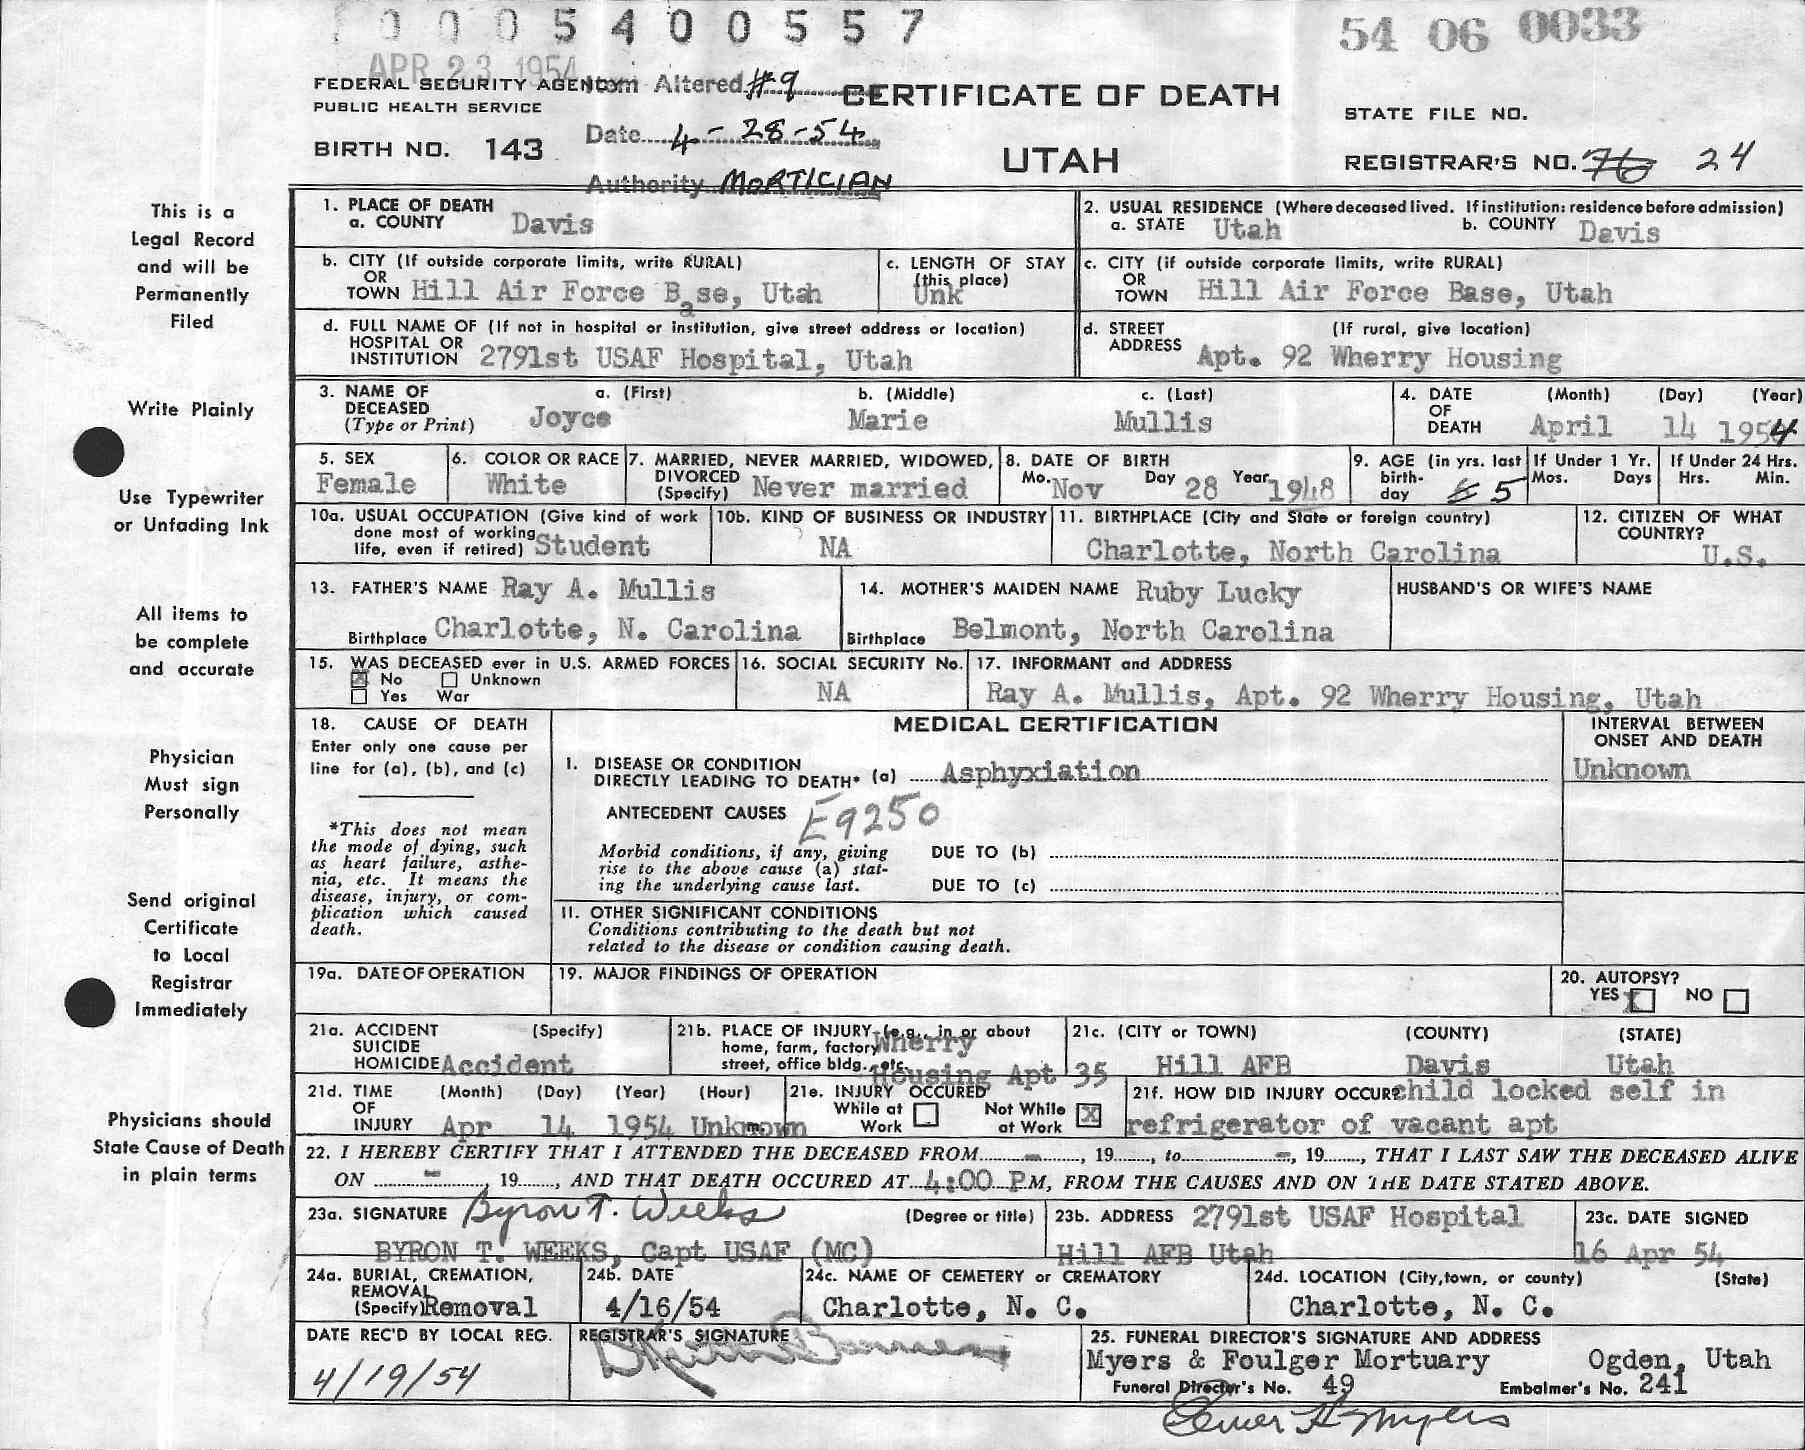 0005400557
54 06 0033
APR 23 1954
FEDERAL SECURITY AGENCY
PUBLIC HEALTH SERVICE
BIRTH NO. 143
Item Altered #9
Date 4-28-54
Authority MORTICIAN
CERTIFICATE OF DEATH
UTAH
STATE FILE NO.
REGISTRAR'S NO. 76 24
This is a
Legal Record
and will be
Permanently
Filed
Write Plainly
Use Typewriter
or Unfading Ink
All items to
be complete
and accurate
Physician
Must sign
Personally
Send original
Certificate
to Local
Registrar
Immediately
Physicians should
State Cause of Death
in plain terms
1. PLACE OF DEATH
a. COUNTY Davis
2. USUAL RESIDENCE (Where deceased lived. If institution: residence before admission)
a. STATE Utah b. COUNTY Davis
b. CITY (If outside corporate limits, write RURAL)
OR
TOWN Hill Air Force Base, Utah
c. LENGTH OF STAY
(this place)
Unk
c. CITY (if outside corporate limits, write RURAL)
OR
TOWN Hill Air Force Base, Utah
d. FULL NAME OF (If not in hospital or institution, give street address or location)
HOSPITAL OR
INSTITUTION 2791st USAF Hospital, Utah
d. STREET (If rural, give location)
ADDRESS Apt. 92 Wherry Housing
3. NAME OF a. (First) b. (Middle) c. (Last)
DECEASED
(Type or Print) Joyce Marie Mullis
4. DATE (Month) (Day) (Year)
OF
DEATH April 14 1954
5. SEX
Female
6. COLOR OR RACE
White
7. MARRIED, NEVER MARRIED, WIDOWED,
DIVORCED
(Specify) Never married
8. DATE OF BIRTH
Mo. Nov Day 28 Year 1948
9. AGE (in yrs. last
birth-
day 5
If Under 1 Yr.
Mos. Days
If Under 24 Hrs.
Hrs. Min.
10a. USUAL OCCUPATION (Give kind of work
done most of working
life, even if retired) Student
10b. KIND OF BUSINESS OR INDUSTRY
NA
11. BIRTHPLACE (City and State or foreign country)
Charlotte, North Carolina
12. CITIZEN OF WHAT
COUNTRY?
U.S.
13. FATHER'S NAME Ray A. Mullis
Birthplace Charlotte, N. Carolina
14. MOTHER'S MAIDEN NAME Ruby Lucky
Birthplace Belmont, North Carolina
HUSBAND'S OR WIFE'S NAME
15. WAS DECEASED ever in U.S. ARMED FORCES
X No Unknown
Yes War
16. SOCIAL SECURITY No.
NA
17. INFORMANT and ADDRESS
Ray A. Mullis, Apt. 92 Wherry Housing, Utah
18. CAUSE OF DEATH
Enter only one cause per
line for (a), (b), and (c)
*This does not mean
the mode of dying, such
as heart failure, asthe-
nia, etc. It means the
disease, injury, or com-
plication which caused
death.
MEDICAL CERTIFICATION
INTERVAL BETWEEN
ONSET AND DEATH
Unknown
I. DISEASE OR CONDITION
DIRECTLY LEADING TO DEATH* (a) Asphyxiation
ANTECEDENT CAUSES E9250
Morbid conditions, if any, giving
rise to the above cause (a) stat-
ing the underlying cause last.
DUE TO (b)
DUE TO (c)
II. OTHER SIGNIFICANT CONDITIONS
Conditions contributing to the death but not
related to the disease or condition causing death.
19a. DATE OF OPERATION
19. MAJOR FINDINGS OF OPERATION
20. AUTOPSY?
YES X NO
21a. ACCIDENT (Specify)
SUICIDE
HOMICIDE Accident
21b. PLACE OF INJURY (e.g., in or about
home, farm, factory
street, office bldg., etc.
Wherry
Housing Apt 35
21c. (CITY or TOWN) (COUNTY) (STATE)
Hill AFB Davis Utah
21d. TIME (Month) (Day) (Year) (Hour)
OF
INJURY Apr 14 1954 Unknown
m.
21e. INJURY OCCURED
While at
Work
Not While
at Work X
21f. HOW DID INJURY OCCUR child locked self in
refrigerator of vacant apt
22. I HEREBY CERTIFY THAT I ATTENDED THE DECEASED FROM - , 19 , to - , 19 , THAT I LAST SAW THE DECEASED ALIVE
ON - , 19 , AND THAT DEATH OCCURED AT 4:00 PM, FROM THE CAUSES AND ON THE DATE STATED ABOVE.
23a. SIGNATURE Byron T. Weeks (Degree or title)
BYRON T. WEEKS, Capt USAF (MC)
23b. ADDRESS 2791st USAF Hospital
Hill AFB Utah
23c. DATE SIGNED
16 Apr 54
24a. BURIAL, CREMATION,
REMOVAL
(Specify) Removal
24b. DATE
4/16/54
24c. NAME OF CEMETERY or CREMATORY
Charlotte, N. C.
24d. LOCATION (City, town, or county) (State)
Charlotte, N. C.
DATE REC'D BY LOCAL REG.
4/19/54
REGISTRAR'S SIGNATURE
25. FUNERAL DIRECTOR'S SIGNATURE AND ADDRESS
Myers & Foulger Mortuary Ogden, Utah
Funeral Director's No. 49 Embalmer's No. 241
Myers